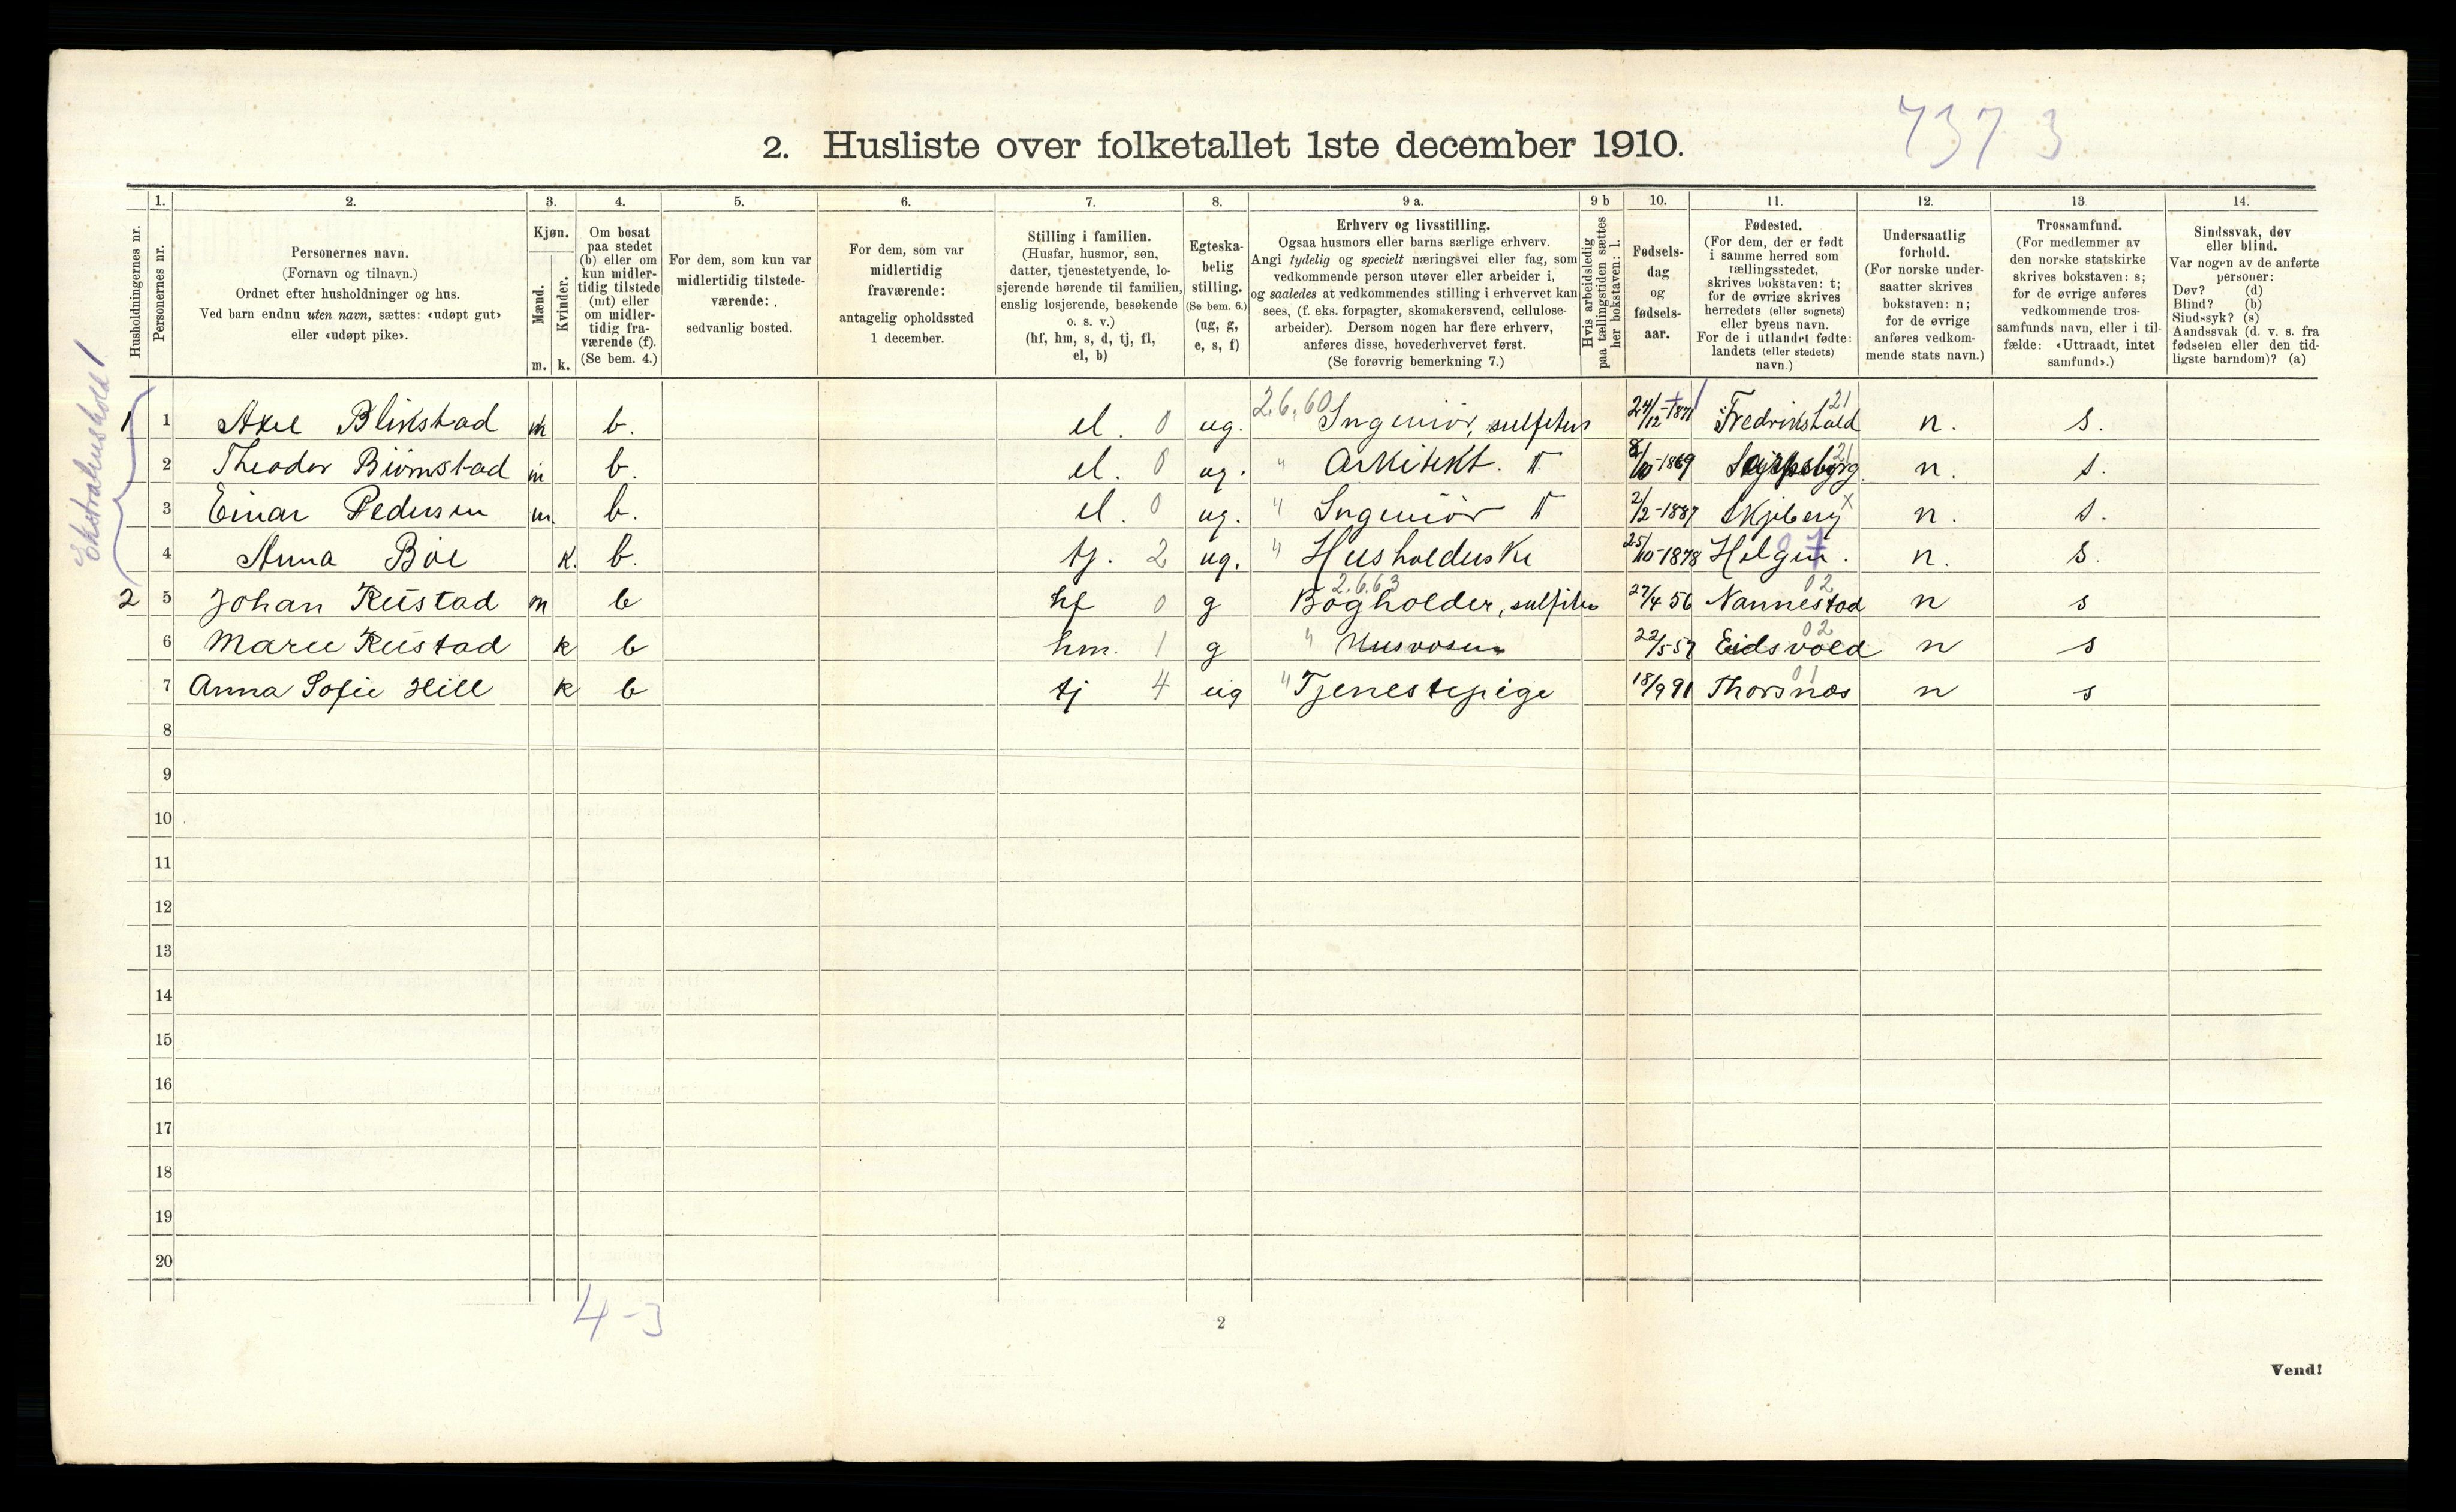 7373
2. Husliste over folketallet 1ste december 1910.
Husholdningernes nr.
1. Personernes nr.
2. Personernes navn.
(Fornavn og tilnavn.)
Ordnet efter husholdninger og hus.
Ved barn endnu uten navn, sættes: «udøpt gut»
eller «udøpt pike».
3. Kjøn.
Mænd. m.
Kvinder. k.
4. Om bosat
paa stedet
(b) eller om
kun midler-
tidig tilstede
(mt) eller
om midler-
tidig fra-
værende (f).
(Se bem. 4.)
5. For dem, som kun var
midlertidig tilstede-
værende:
sedvanlig bosted.
6. For dem, som var
midlertidig
fraværende:
antagelig opholdssted
1 december.
7. Stilling i familien.
(Husfar, husmor, søn,
datter, tjenestetyende, lo-
sjerende hørende til familien,
enslig losjerende, besøkende
o. s. v.)
(hf, hm, s, d, tj, fl,
el, b)
8. Egteska-
belig
stilling.
(Se bem. 6.)
(ug, g,
e, s, f)
9 a. Erhverv og livsstilling.
Ogsaa husmors eller barns særlige erhverv.
Angi tydelig og specielt næringsvei eller fag, som
vedkommende person utøver eller arbeider i,
og saaledes at vedkommendes stilling i erhvervet kan
sees, (f. eks. forpagter, skomakersvend, cellulose-
arbeider). Dersom nogen har flere erhverv,
anføres disse, hovederhvervet først.
(Se forøvrig bemerkning 7.)
9 b Hvis arbeidsledig
paa tællingstiden sættes
her bokstaven: l.
10. Fødsels-
dag
og
fødsels-
aar.
11. Fødested.
(For dem, der er født
i samme herred som
tællingsstedet,
skrives bokstaven: t;
for de øvrige skrives
herredets (eller sognets)
eller byens navn.
For de i utlandet fødte:
landets (eller stedets)
navn.)
12. Undersaatlig
forhold.
(For norske under-
saatter skrives
bokstaven: n;
for de øvrige
anføres vedkom-
mende stats navn.)
13 Trossamfund.
(For medlemmer av
den norske statskirke
skrives bokstaven: s;
for de øvrige anføres
vedkommende tros-
samfunds navn, eller i til-
fælde: «Uttraadt, intet
samfund».)
14. Sindssvak, døv
eller blind.
Var nogen av de anførte
personer:
Døv? (d)
Blind? (b)
Sindssyk? (s)
Aandssvak (d. v. s. fra
fødselen eller den tid-
ligste barndom)? (a)
Ekstrahushold 1
1 1 Axel Blikstad m b. el. 0 ug. 2.6.60 Ingeniør, sulfitus 24/12-1871 Fredrikshald 21 n. s.
2 Theodor Biørnstad m b. el. 0 ug. " Arkitekt. 8/10-1869 Sarpsborg. 21 n. s.
3 Einar Pedersen m. b. el. 0 ug. " Ingeniør 2/2-1887 Skjeberg x n. s.
4 Anna Bøe k. b. tj. 2 ug. " Husholderske 25/10-1878 Helgen. 07 n. s.
2 5 Johan Rustad m b hf 0 g 2.6.63 Bogholder, 27/4 56 Nannestad 02 n s
6 Marie Rustad k b hm. 1 g " Husvosen 22/5 57 Eidsvold 02 n s
7 Anna Sofie Hill k b tj 4 ug " Tjenestepige 18/9 91 Thorsnæs 01 n s
8
9
10
11
12
13
14
15
16
17
18
19
20
4-3
2
Vend!